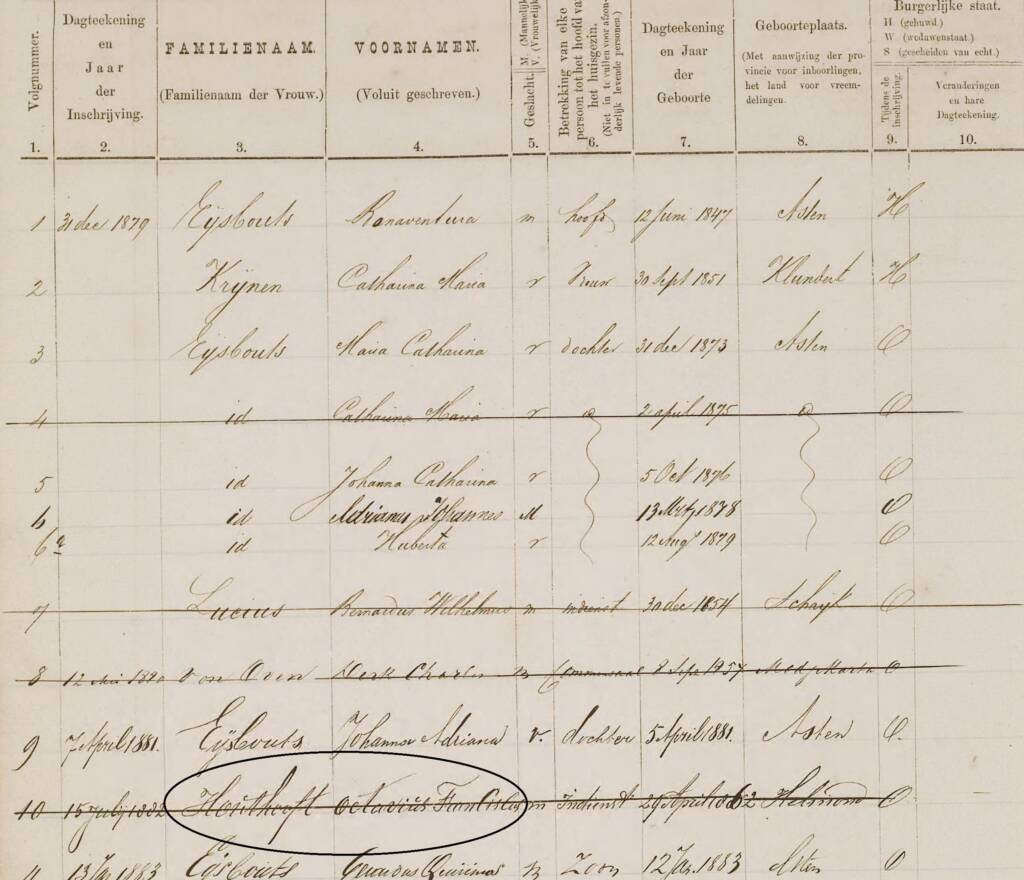 Volgnummer.
Dagteekening
en
Jaar
der
Inschrijving.
FAMILIENAAM.
(Familienaam der Vrouw.)
VOORNAMEN.
(Voluit geschreven.)
Geslacht. M. (Mannelijk) V. (Vrouwelijk)
Betrekking van elke
persoon tot het hoofd va
het huisgezin.
(Niet in te vullen voor afzon-
derlijk levende personen.)
Dagteekening
en Jaar
der
Geboorte
Geboorteplaats.
(Met aanwijzing der pro-
vincie voor inboorlingen,
het land voor vreem-
delingen.
Burgerlijke staat.
H (gehuwd.)
W (weduwenstaat.)
S (gescheiden van echt.)
Tijdens de
inschrijving.
Veranderingen
en hare
Dagteekening.
1. 2. 3. 4. 5. 6. 7. 8. 9. 10.
1 31 dec 1879 Eijsbouts Bonaventura m hoofd 12 Juni 1847 Asten H
2 Krijnen Catharina Maria v Vrouw 30 Sept 1851 Klundert H
3 Eijsbouts Maria Catharina v dochter 31 dec 1873 Asten O
4 id Catharina Maria v 2 april 1875 O
5 id Johanna Catharina v 5 Oct 1876 O
6 id Adrianus Johannes M 13 Mrt 1878 O
6a id Huberta v 12 Aug 1879 O
7 Lucius Bernardus Wilhelmus m indienst 30 dec 1854 Schaijk O
8 12 1880 von Charles m Commensaal 8 Sept 1857 O
9 7 April 1881. Eijsbouts Johanna Adriana v. dochter 5 April 1881. Asten O.
10 15 July 1882 Houthooft Octavius Franciscus m Indienst 29 April 1862 Helmond O
11 13 Jan 1883 Eijsbouts Quirinus m Zoon 12 Jan. 1883 Asten O